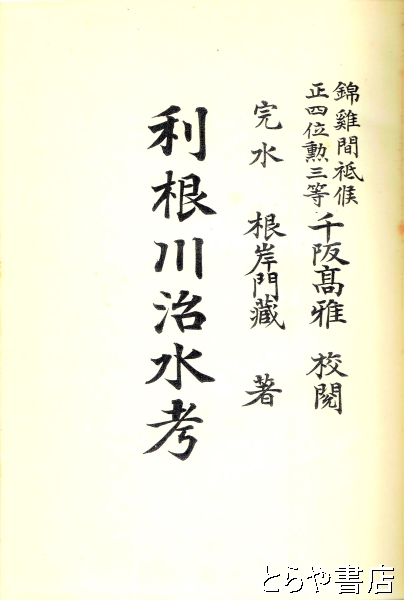 錦雞間祗候
正四位勲三等 千阪高雅 校閱
完水 根岸門藏 著
利根川治水考
とらや書店